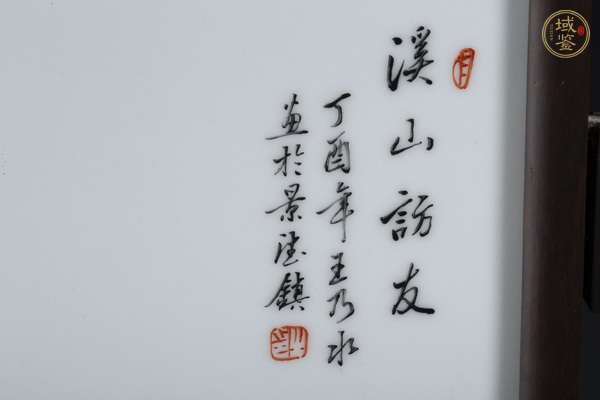 溪山訪友
丁酉年王乃水
畫於景德鎮
域鉴